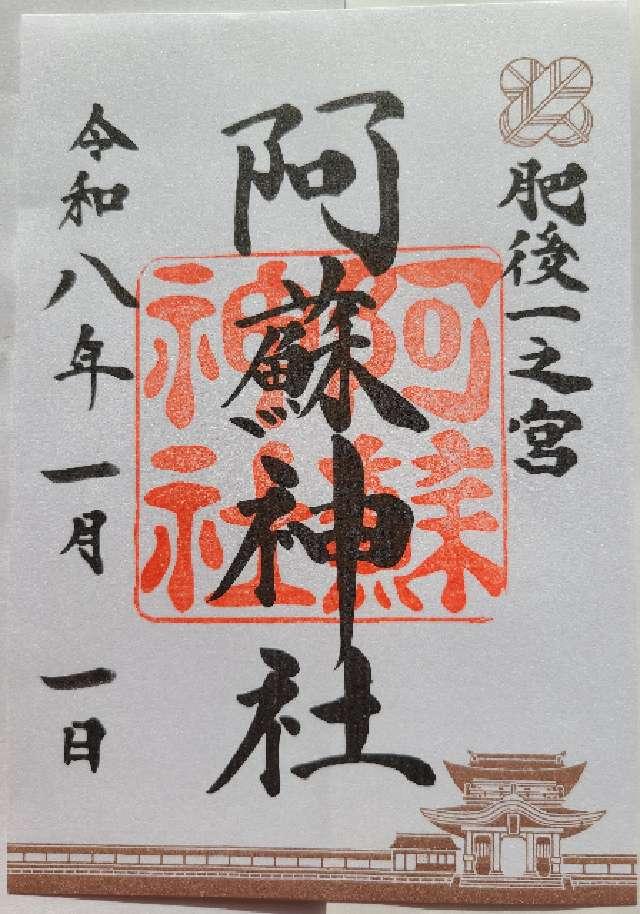 肥後一之宮
阿蘇神社
阿蘇神社
令和八年一月一日